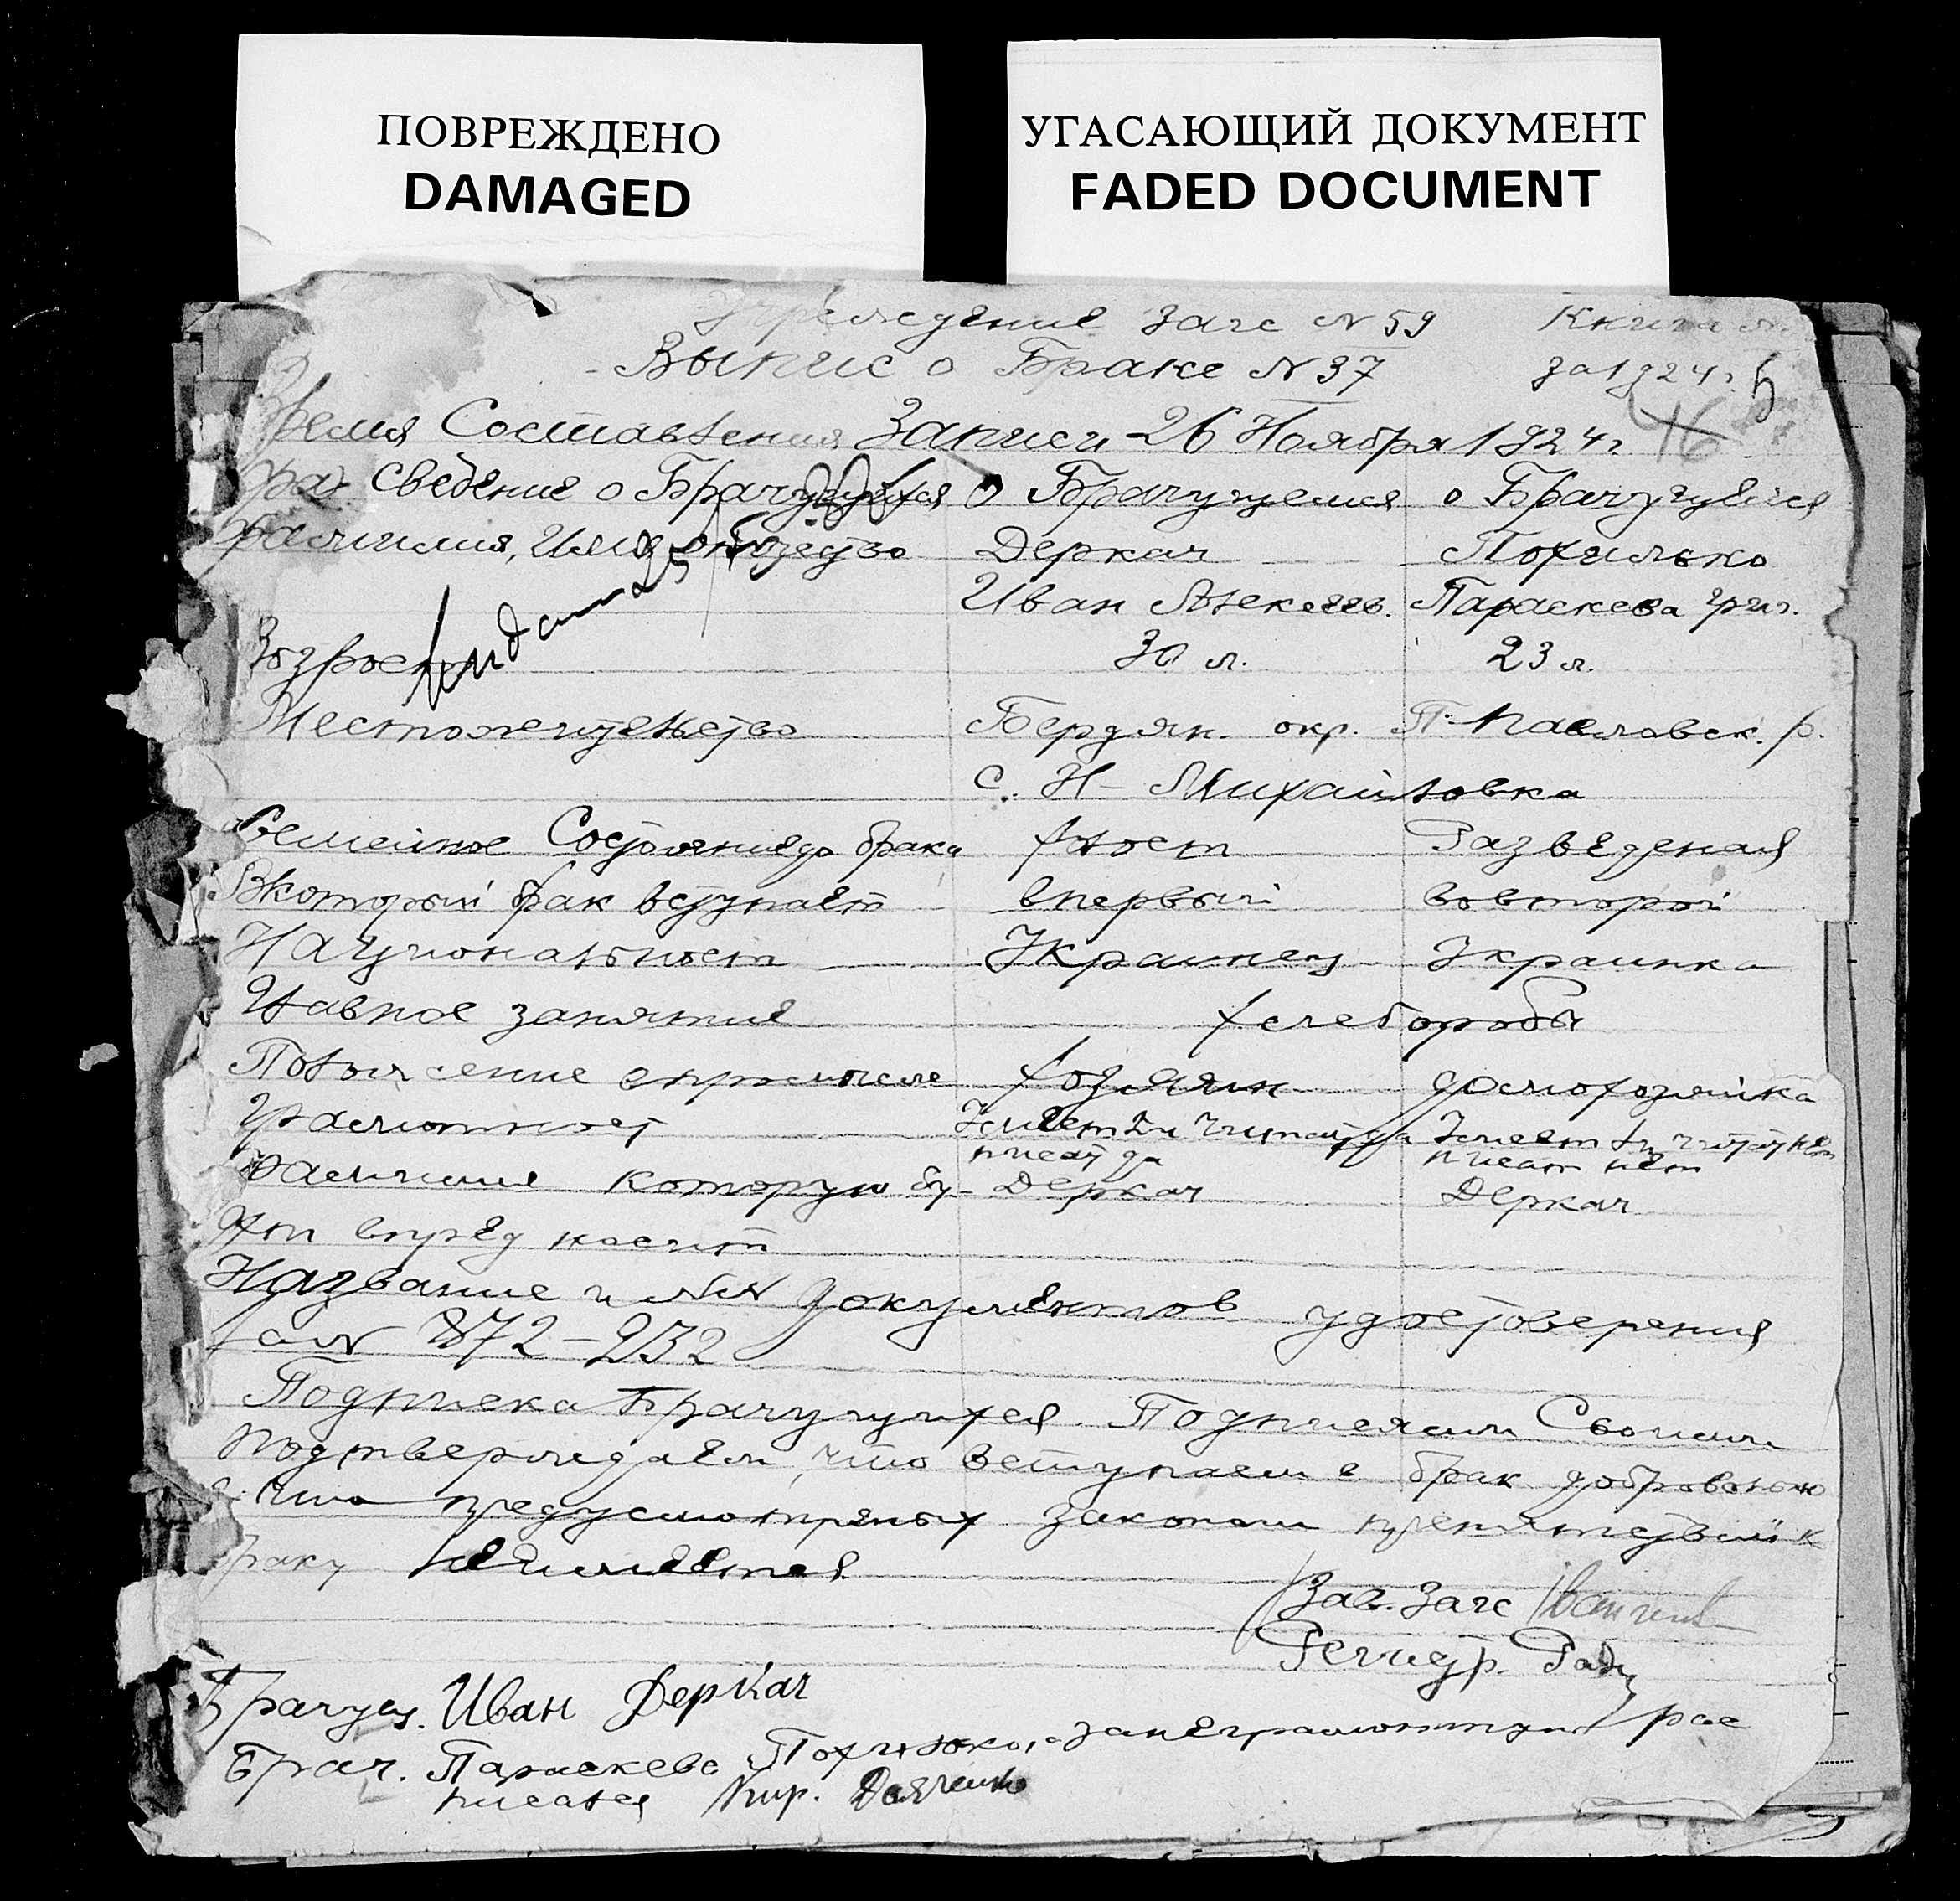 ПОВРЕЖДЕНО
DAMAGED
УГАСАЮЩИЙ ДОКУМЕНТ
FADED DOCUMENT
Учреждение Загс №59 Книга №
Выпис о Браке №37 за 1924 г.
16
Время Составления Записи 26 Ноября 1924 г.
Сведение о Брачующихся о Брачующемся о Брачующейся
Фамилия, Имя, отчество Деркач Похилько
Иван Алексеев. Параскева Григ.
Возраст 30 л. 23 л.
Местожительство Бердян. окр. П-Павловск. р.
с. Н-Михайловка
Семейное Состояние до брака Холост Разведеная
Вкоторый брак вступает впервый вовторой
Национальност Украинец Украинка
Главное занятие Хлеборобы
Положение впромысле Хозяин домохозяйка
Грамотност Умеет ли читат да Умеет ли читат нет
писат да писат нет
Фамилие которую бу- Деркач Деркач
дут впред носит
Название и №№ документов удостоверения
за № 872-932
Подписка Брачующихся. Подписями Своими
Подтверждаем, что вступаем в брак добровольно
и что предусмотреных законом препятствий к
браку неимеется
Зав. Загс
Регистр.
Брачующ. Иван Деркач
Брач. Параскева Похилько, а занеграмотную рас
писался Кир.